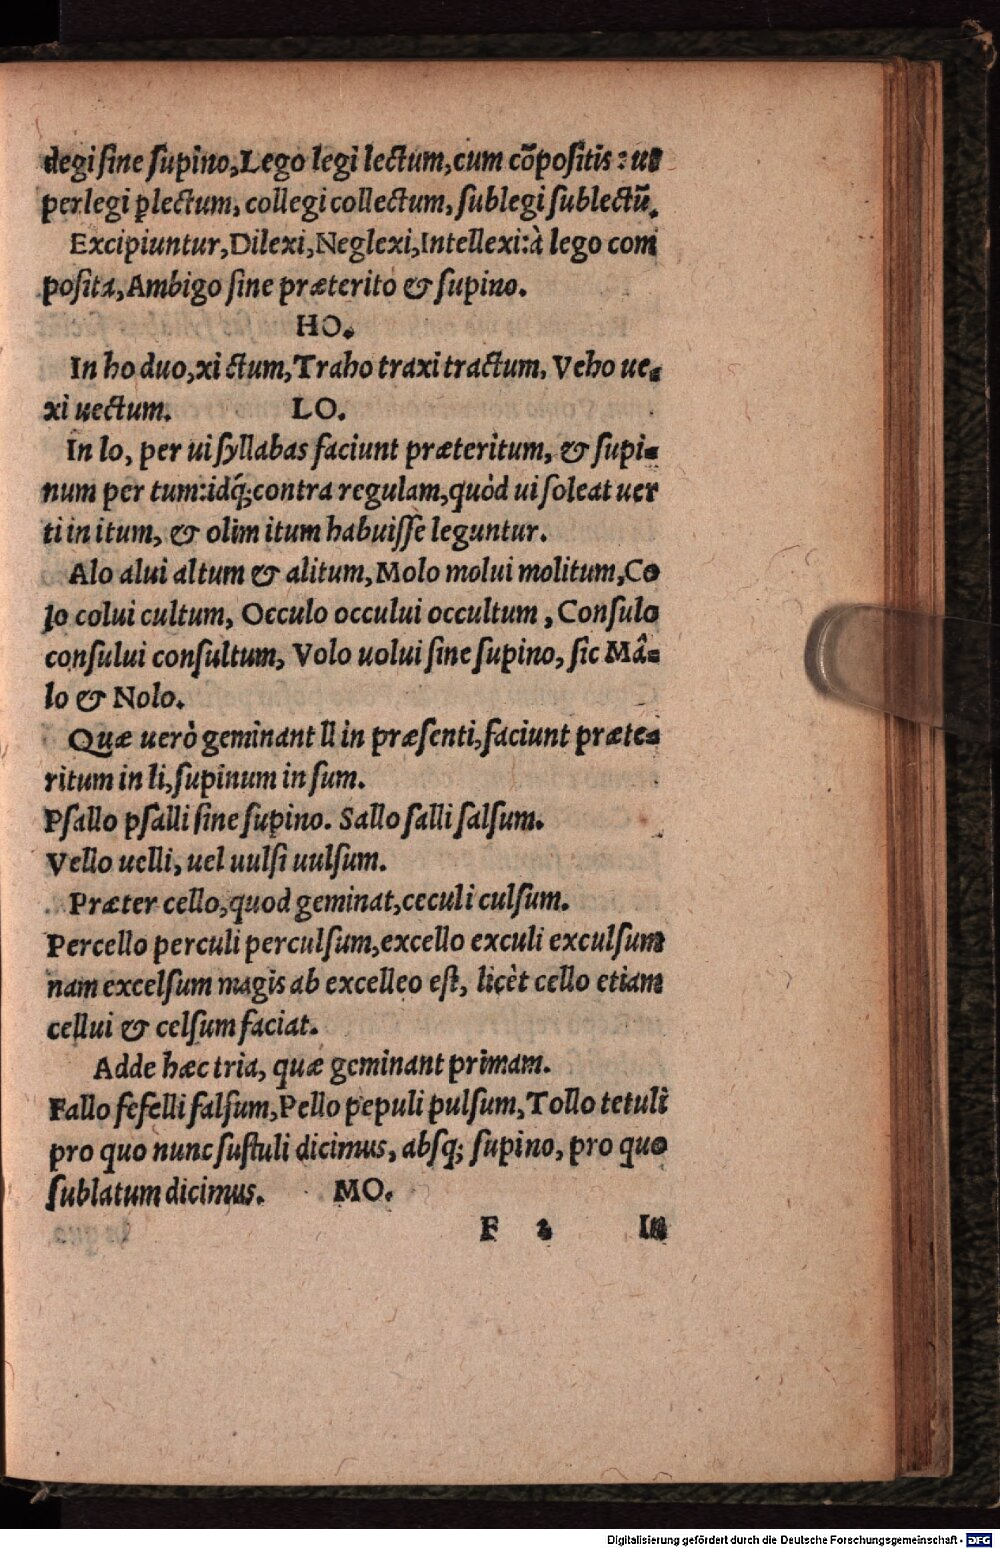 degi ſine ſupino, Lego legi lectum, cum cõpoſitis: ut
perlegi ꝑlectum, collegi collectum, ſublegi ſublectũ.
Excipiuntur, Dilexi, Neglexi, Intellexi: à lego com
poſita, Ambigo ſine præterito & ſupino.
HO.
In ho duo, xi ctum, Traho traxi tractum, Veho ue-
xi uectum. LO.
In lo, per ui ſyllabas faciunt præteritum, & ſupi-
num per tum: idq́; contra regulam, quòd ui ſoleat uer
ti in itum, & olim itum habuiſſe leguntur.
Alo alui altum & alitum, Molo molui molitum, Co
lo colui cultum, Occulo occului occultum, Conſulo
conſului conſultum, Volo uolui ſine ſupino, ſic Mâ-
lo & Nolo.
Quæ uerò geminant ll in præſenti, faciunt præte-
ritum in li, ſupinum in ſum.
Pſallo pſalli ſine ſupino. Sallo ſalli ſalſum.
Vello uelli, uel uulſi uulſum.
Præter cello, quod geminat, ceculi culſum.
Percello perculi perculſum, excello exculi exculſum
nam excelſum magis ab excelleo eſt, licèt cello etiam
cellui & celſum faciat.
Adde hæc tria, quæ geminant primam.
Fallo fefelli falſum, Pello pepuli pulſum, Tollo tetuli
pro quo nunc ſuſtuli dicimus, abſq; ſupino, pro quo
ſublatum dicimus. MO.
F 2 In
Digitalisierung gefördert durch die Deutsche Forschungsgemeinschaft - DFG